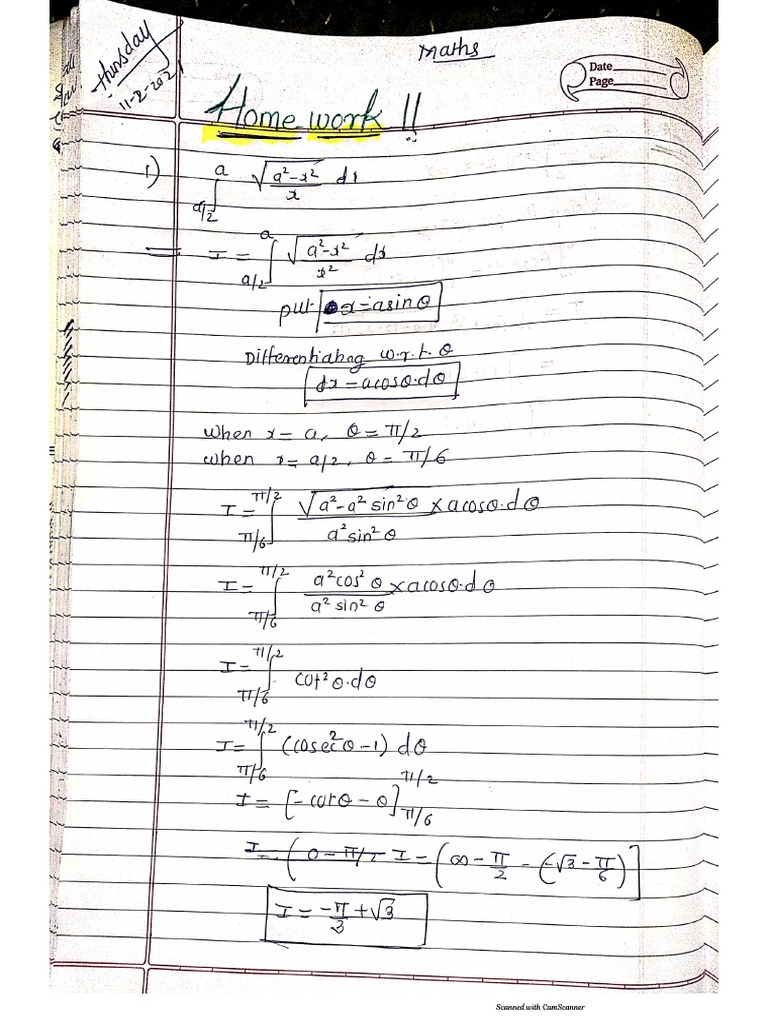 Maths
Thursday
11-2-2021
Date
Page
Home work !!
1) ∫_{a/2}^{a} √(a²-x²)/x dx
= I = ∫_{a/2}^{a} √(a²-x²)/x² dx
put x=asinθ
Differentiating w.r.t. θ
dx = acosθ.dθ
when x = a, θ = π/2
when x = a/2, θ = π/6
I = ∫_{π/6}^{π/2} √(a²-a²sin²θ)/(a²sin²θ) × acosθ.dθ
I = ∫_{π/6}^{π/2} a²cos²θ/(a²sin²θ) × acosθ.dθ
I = ∫_{π/6}^{π/2} cot²θ.dθ
I = ∫_{π/6}^{π/2} (cosec²θ-1) dθ
I = [-cotθ-θ]_{π/6}^{π/2}
I = (0-π/2 I = (∞ - π/2 - (-√3 - π/6)]
I = -π/3 + √3
Scanned with CamScanner